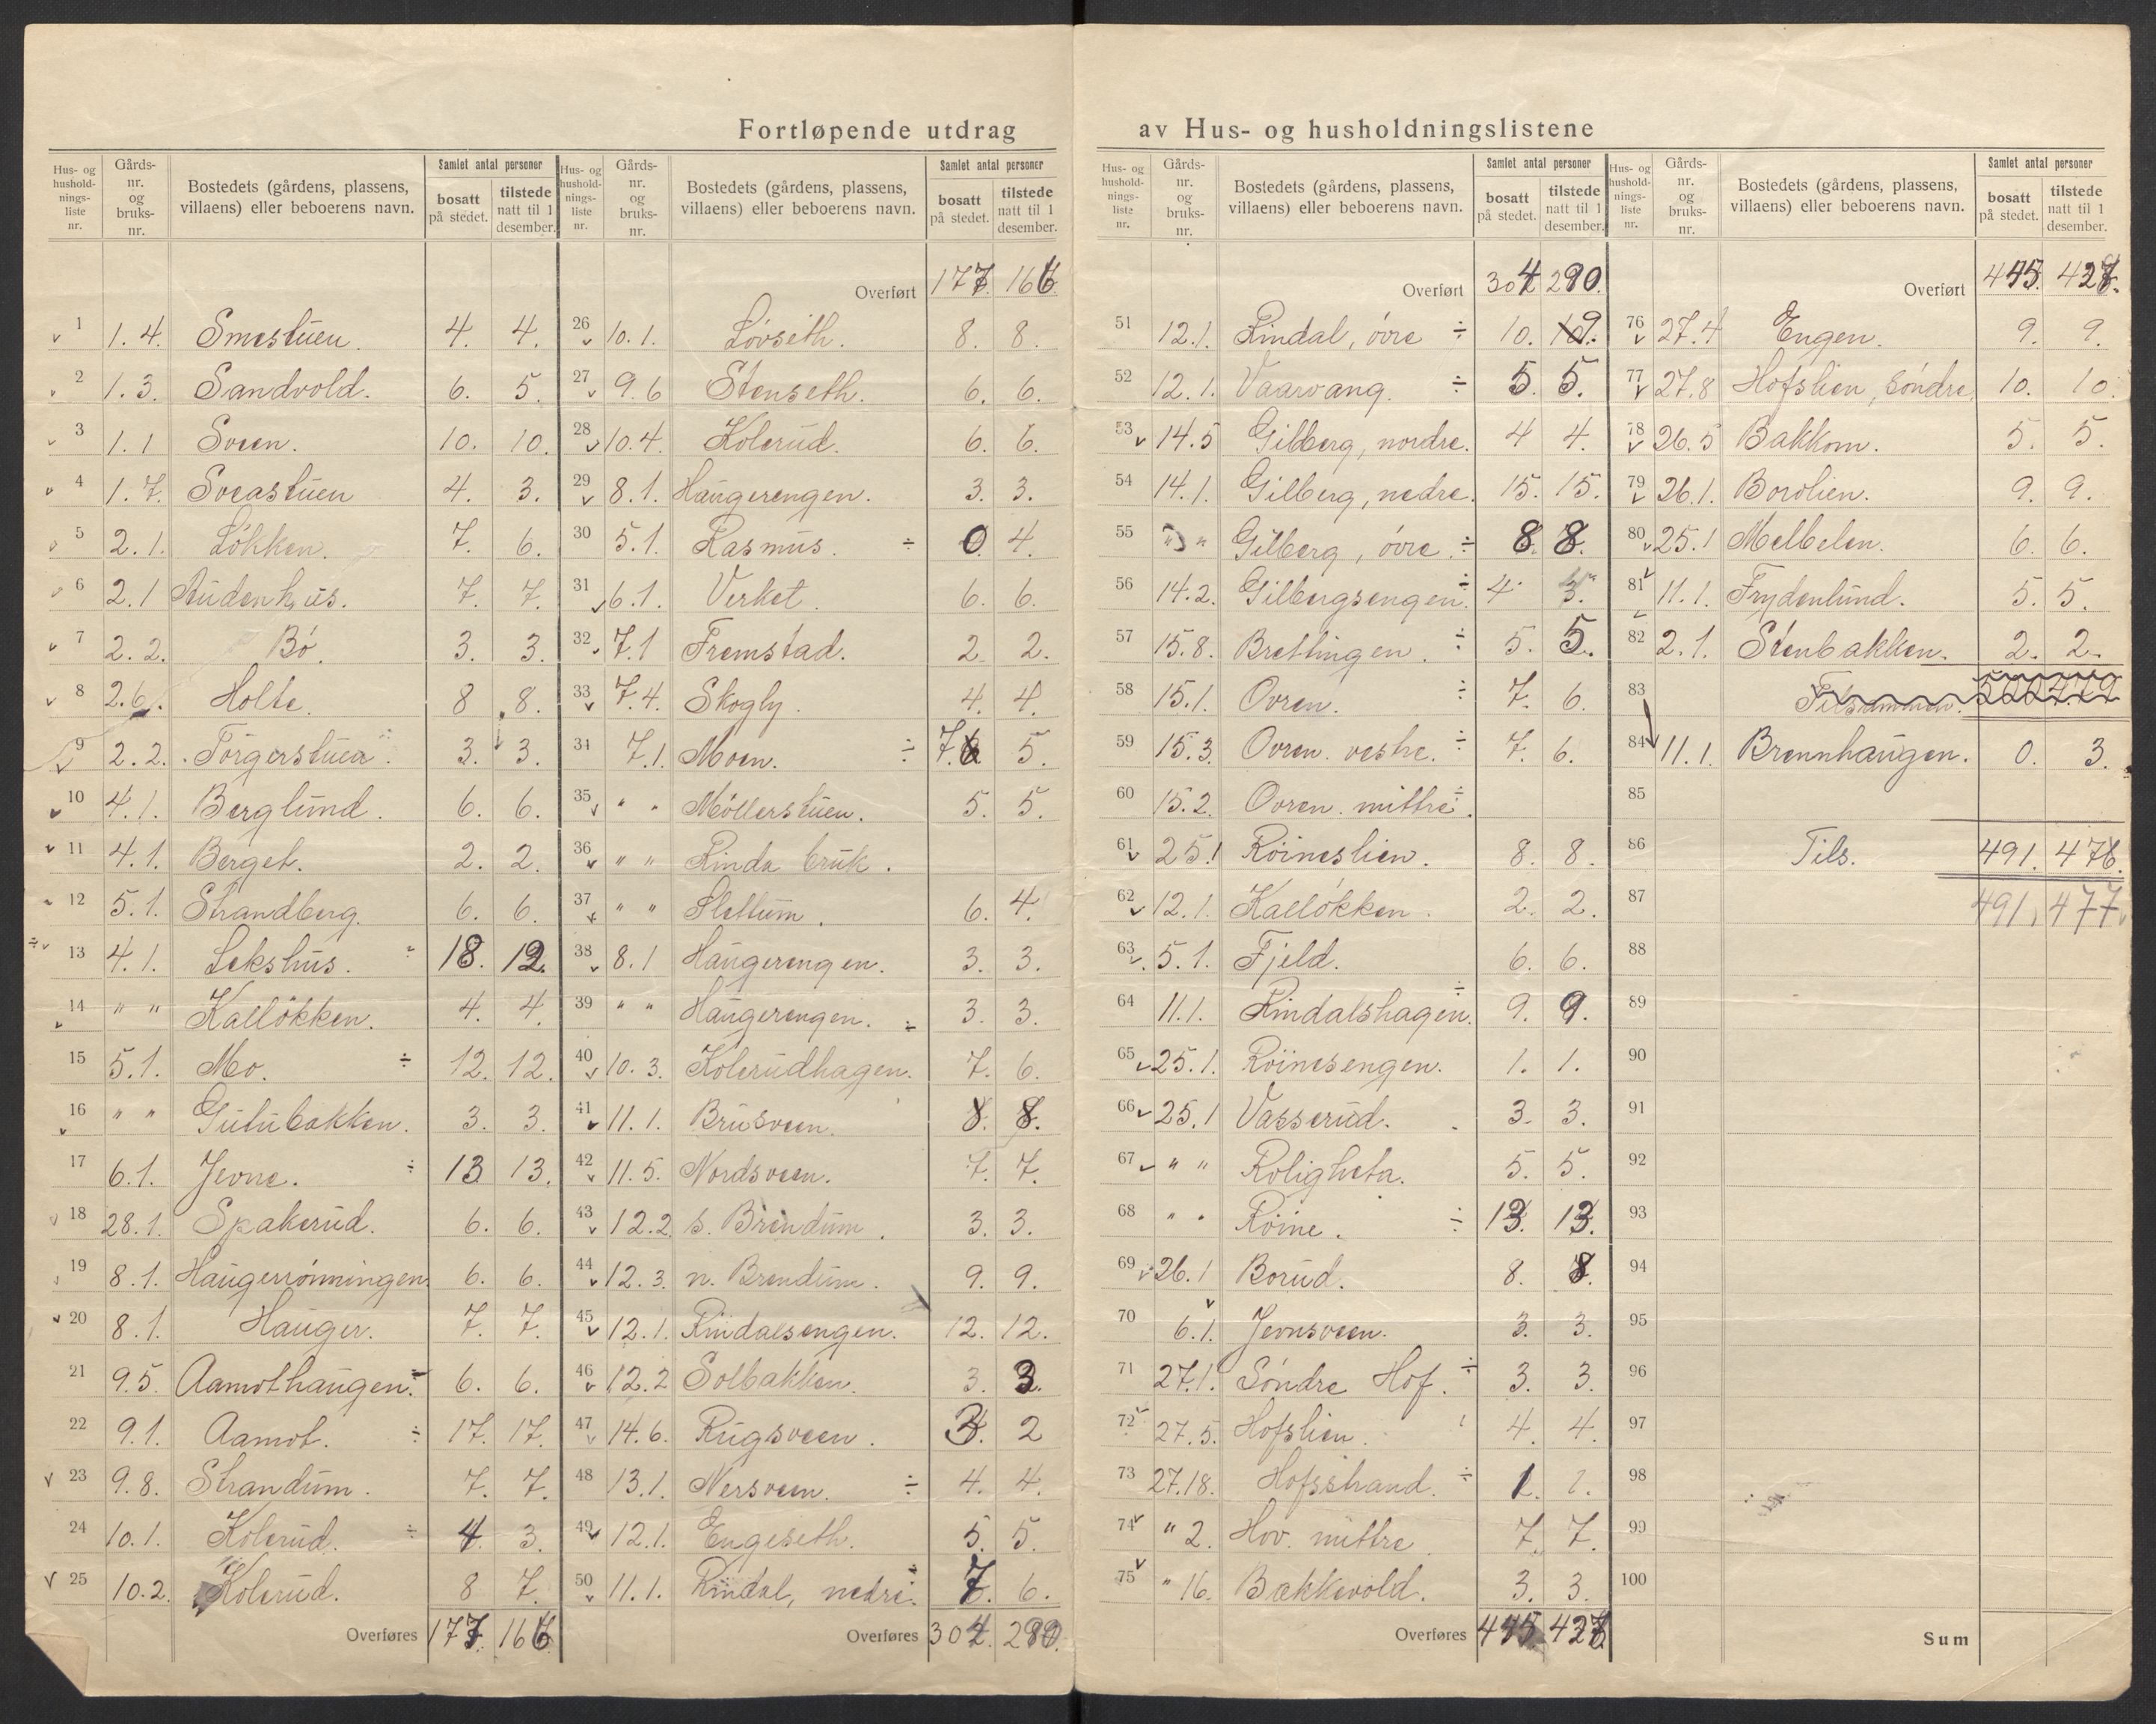 Fortløpende utdrag av Hus- og husholdningslistene
Hus- og husholdnings- liste nr. Gårds- nr. og bruks- nr. Bostedets (gårdens, plassens, villaens) eller beboerens navn. Samlet antal personer bosatt på stedet. tilstede natt til 1 desember.
1 1.4. Smestuen. 4. 4.
2 1.3. Sandvold. 6. 5.
3 1.1 Sveen. 10. 10.
4 1.7. Sveastuen 4. 3.
5 2.1. Løkken. 7. 6.
6 2.1 Audenhus. 7. 7.
7 2.2. Bø. 3. 3.
8 2.6. Holte. 8 8.
9 2.2. Torgerstuen. 3. 3.
10 4.1. Berglund. 6. 6.
11 4.1. Berget. 2. 2.
12 5.1. Strandberg. 6. 6.
13 4.1. Lekshus. ÷ 18. 12.
14 " " Kalløkken. 4. 4.
15 5.1. Mo. ÷ 12. 12.
16 " " Gulubakken. 3. 3.
17 6.1. Jevne. ÷ 13 13.
18 28.1. Spakerud. 6. 6.
19 8.1. Haugerrønningen 6. 6.
20 8.1. Hauger. 7. 7.
21 9.5. Aamothaugen. ÷ 6. 6.
22 9.1. Aamot. ÷ 17. 17.
23 9.8. Strandum. 7. 7.
24 10.1. Kolerud. ÷ 4. 3.
25 10.2. Kolerud. 8 7.
Overføres 177. 166
Hus- og husholdnings- liste nr. Gårds- nr. og bruks- nr. Bostedets (gårdens, plassens, villaens) eller beboerens navn. Samlet antal personer bosatt på stedet. tilstede natt til 1 desember.
Overført 177. 166
26 10.1. Løvseth. 8. 8.
27 9.6 Stenseth. 6. 6.
28 10.4. Kolerud. 6. 6.
29 8.1. Haugerengen. 3. 3.
30 5.1. Rasmus. ÷ 0 4.
31 6.1. Verket. 6. 6.
32 7.1 Fremstad. 2. 2.
33 7.4. Skogly. 4. 4.
34 7.1. Moen. ÷ 7. 5.
35 " " Møllerstuen. 5. 5.
36 " " Rinda bruk.
37 " " Slettum. 6. 4.
38 8.1 Haugerengen. 3. 3.
39 " " Haugerengen. ÷ 3. 3.
40 10.3. Kolerudhagen. 7. 6.
41 11.1. Brusveen. 8. 8.
42 11.5. Nordsveen. 7. 7.
43 12.2 s. Brendum. 3. 3.
44 12.3. n. Brendum. 9. 9.
45 12.1. Rindalsengen. 12. 12.
46 12.2 Solbakken. 3. 3.
47 14.6. Rugsveen. 3. 2
48 13.1. Nersveen. ÷ 4. 4.
49 12.1. Engeseth. 5. 5.
50 11.1. Rindal, nedre. ÷ 7. 6.
Overføres 304. 290.
Hus- og husholdnings- liste nr. Gårds- nr. og bruks- nr. Bostedets (gårdens, plassens, villaens) eller beboerens navn. Samlet antal personer bosatt på stedet. tilstede natt til 1 desember.
Overført 304 290.
51 12.1. Rindal, øvre ÷ 10. 9.
52 12.1. Vaarvang. ÷ 5. 5.
53 14.5 Gilberg, nordre. 4 4.
54 14.1. Gilberg, nedre. 15. 15.
55 " " Gilberg, øvre. ÷ 8. 8.
56 14.2. Gilbergsengen. ÷ 4 3.
57 15.8. Brettingen. ÷ 5. 5.
58 15.1. Ovren. ÷ 7. 6.
59 15.3. Ovren. vestre. ÷ 7. 6.
60 15.2. Ovren. mittre. ÷
61 25.1 Røineslien. 8. 8.
62 12.1. Kalløkken. 2. 2.
63 5.1. Fjeld. 6. 6.
64 11.1. Rindalshagen. ÷ 9. 9.
65 25.1. Røinesengen. 1. 1.
66 25.1 Vasserud. 3. 3.
67 " " Roligheta. 5. 5.
68 " " Røine. ÷ 13. 13.
69 26.1 Borud. 8. 8.
70 6.1. Jevnsveen. 3. 3.
71 27.1. Søndre Hof. ÷ 3. 3.
72 27.5. Hofslien. 4. 4.
73 27.18. Hofsstrand. ÷ 1. 1.
74 " 2. Hov. mittre 7. 7.
75 " 16. Bakkevold. 3. 3.
Overføres 445. 427
Hus- og husholdnings- liste nr. Gårds- nr. og bruks- nr. Bostedets (gårdens, plassens, villaens) eller beboerens navn. Samlet antal personer bosatt på stedet. tilstede natt til 1 desember.
Overført 445. 427.
76 27.4 Engen. 9. 9.
77 27.8 Hofslien, søndre 10. 10.
78 26.5 Bakkom. 5. 5.
79 26.1. Borolien. 9. 9.
80 25.1 Melbelen. 6. 6.
81 11.1. Frydenlund. 5. 5.
82 2.1. Stenbakken. 2. 2.
83 Tilsammen.
84 11.1. Brennhaugen. 0. 3.
85
86 Tils. 491. 476.
87 491. 477.
88
89
90
91
92
93
94
95
96
97
98
99
100
Sum